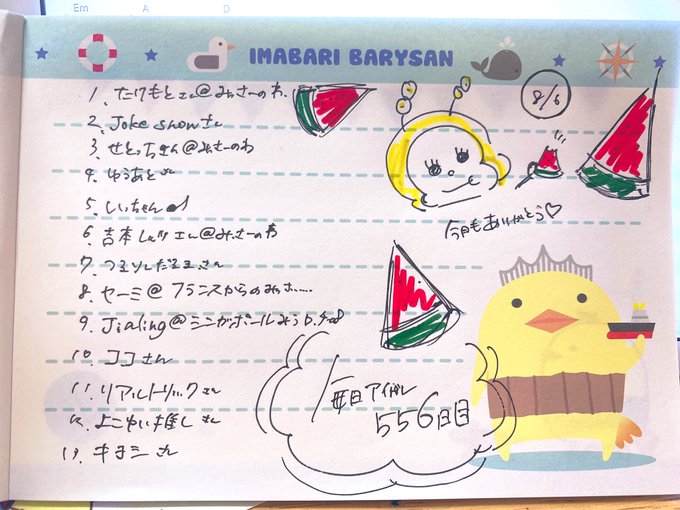 Em A D
IMABARI BARYSAN
8/6
1. たけもとさん@みさーのわ
2. Joke snowさん
3. せとっちさん@みさーのわ
4. ゆうあとさん
5. しいちゃん♪
6. 吉本しゅんさん@みさーのわ
7. さん
8. セーミ@フランスからのみさ……
9. Jialing@シンガポール
10. ココさん
11. リアルトリックさん
12. よこやい推しさん
13. キヨミさん
今日もありがとう♡
毎日アイドル
556日目